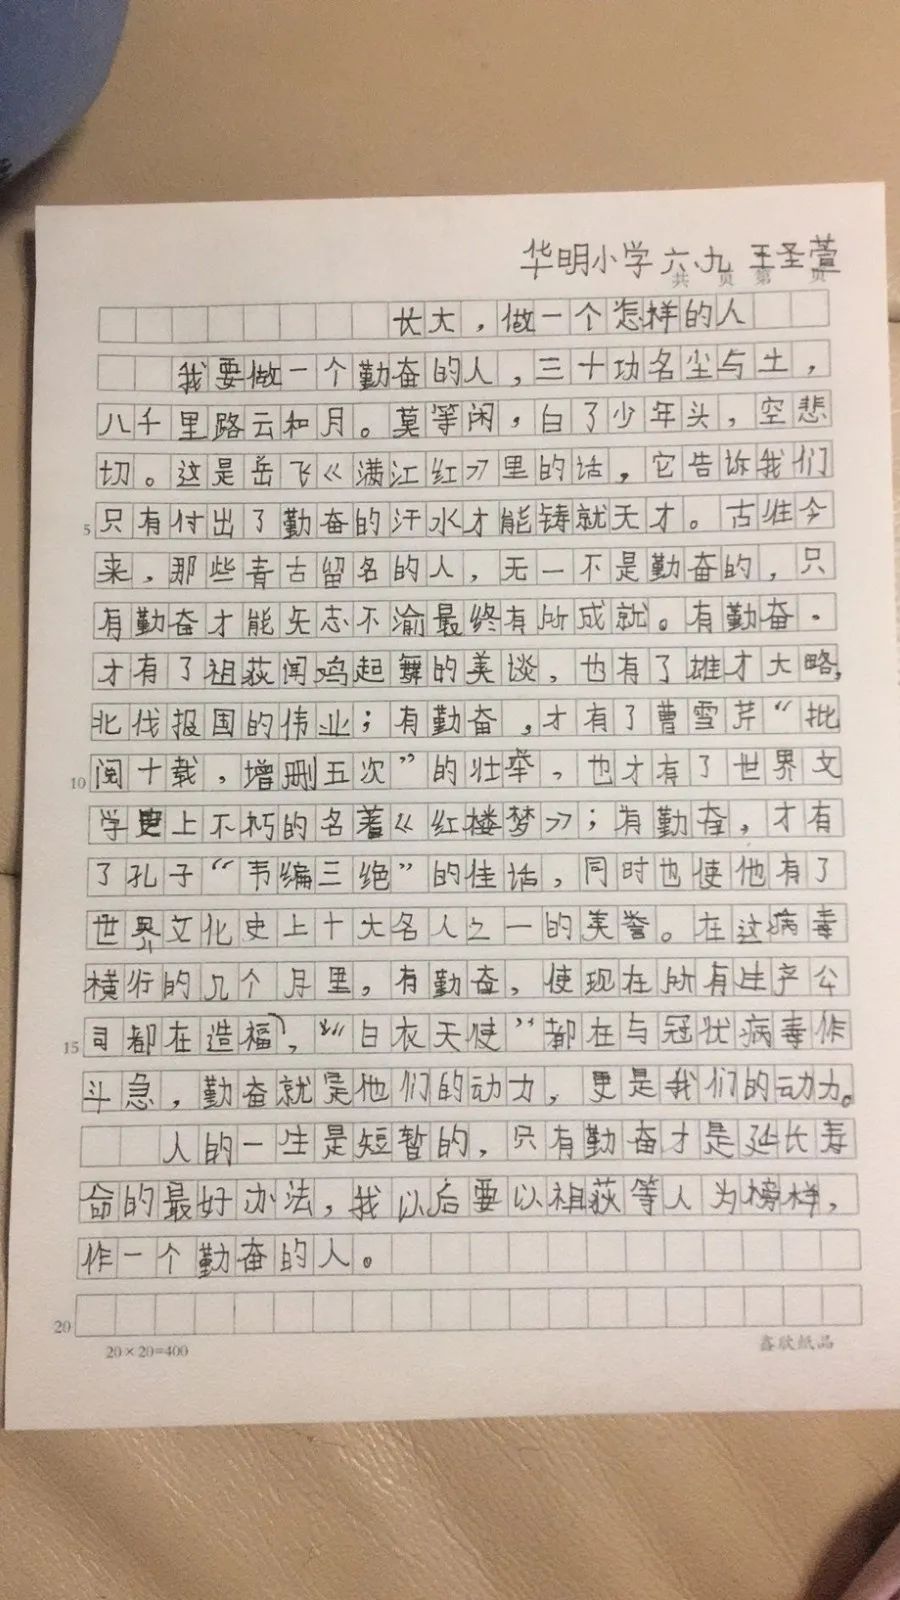 华明小学 六、九 王圣萱
共 页 第 页
长大，做一个怎样的人
我要做一个勤奋的人，三十功名尘与土，
八千里路云和月。莫等闲，白了少年头，空悲
切。这是岳飞《满江红》里的话，它告诉我们
5 只有付出了勤奋的汗水才能铸就天才。古往今
来，那些青古留名的人，无一不是勤奋的，只
有勤奋才能矢志不渝最终有所成就。有勤奋．
才有了祖荻闻鸡起舞的美谈，也有了雄才大略，
北伐报国的伟业；有勤奋，才有了曹雪芹“批
10 阅十载，增删五次”的壮举，也才有了世界文
学史上不朽的名著《红楼梦》；有勤奋，才有
了孔子“韦编三绝”的佳话，同时也使他有了
世界文化史上十大名人之一的美誉。在这病毒
横行的几个月里，有勤奋，使现在所有生产公
15 司都在造福，“白衣天使”都在与冠状病毒作
斗急，勤奋就是他们的动力，更是我们的动力。
人的一生是短暂的，只有勤奋才是延长寿
命的最好办法，我以后要以祖荻等人为榜样，
作一个勤奋的人。
20
20×20=400 鑫欣纸品